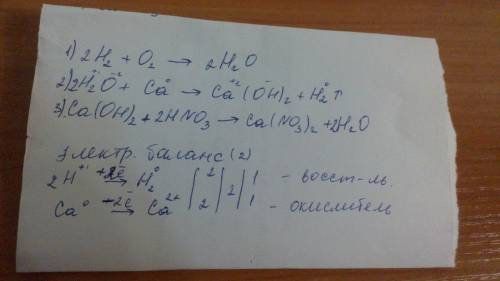 1) 2H₂ + O₂ → 2H₂O
2) 2H₂⁺O⁻² + Ca⁰ → Ca⁺²(OH)₂ + H₂⁰↑
3) Ca(OH)₂ + 2HNO₃ → Ca(NO₃)₂ + 2H₂O
Электр. баланс (2)
2H⁺¹ +2ē → H₂⁰ | 2 | 2 | 1 - восст-ль.
Ca⁰ -2ē → Ca²⁺ | 2 | 2 | 1 - окислитель